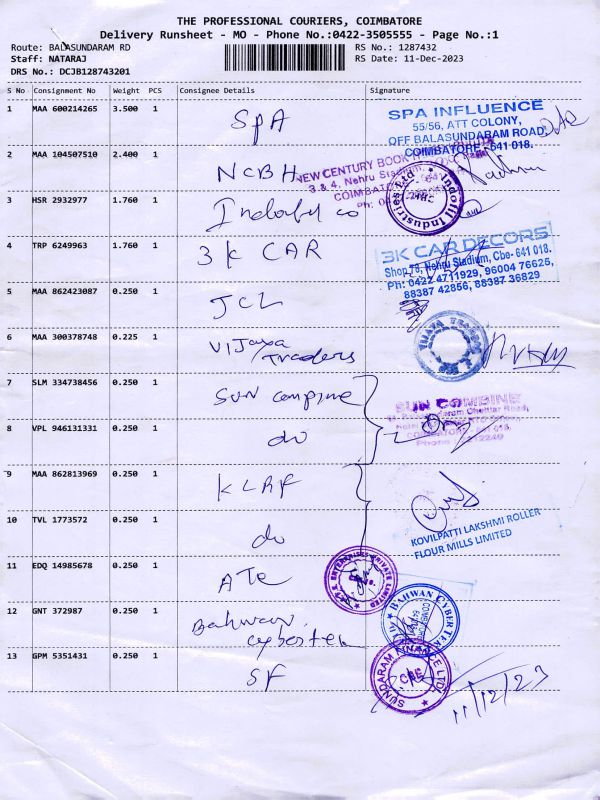 THE PROFESSIONAL COURIERS, COIMBATORE
Delivery Runsheet - MO - Phone No.:0422-3505555 - Page No.:1
Route: BALASUNDARAM RD
RS No.: 1287432
Staff: NATARAJ
RS Date: 11-Dec-2023
DRS No.: DCJB128743201
S No Consignment No Weight PCS Consignee Details Signature
1 MAA 600214265 3.500 1 SPA
SPA INFLUENCE
55/56, ATT COLONY,
OFF BALASUNDARAM ROAD,
COIMBATORE - 641 018.
2 MAA 104507510 2.400 1 NCBH
NEW CENTURY BOOK
3 & 4, Nehru Stadium,
COIMBATORE
Ph:
3 HSR 2932977 1.760 1 Indofil co
Indofil Industries Ltd
4 TRP 6249963 1.760 1 3K CAR
3K CAR DECORS
Shop 78, Nehru Stadium, Cbe- 641 018.
Ph: 0422 4711929, 96004 76625,
88387 42856, 88387 36829
5 MAA 862423087 0.250 1 JCL
6 MAA 300378748 0.225 1 Vijaya
Traders
VIJAYA TRADERS
7 SLM 334738456 0.250 1 SUN compine
SUN COMBINE
8 VPL 946131331 0.250 1 do
9 MAA 862813969 0.250 1 KLRF
10 TVL 1773572 0.250 1 do
KOVILPATTI LAKSHMI ROLLER
FLOUR MILLS LIMITED
11 EDQ 14985678 0.250 1 ATE
ENTERPRISES PRIVATE LIMITED
12 GNT 372987 0.250 1 Bahwan
cybertek
BAHWAN CYBERTEK
13 GPM 5351431 0.250 1 SF
SUNDARAM FINANCE LTD.
CBE
11/12/23